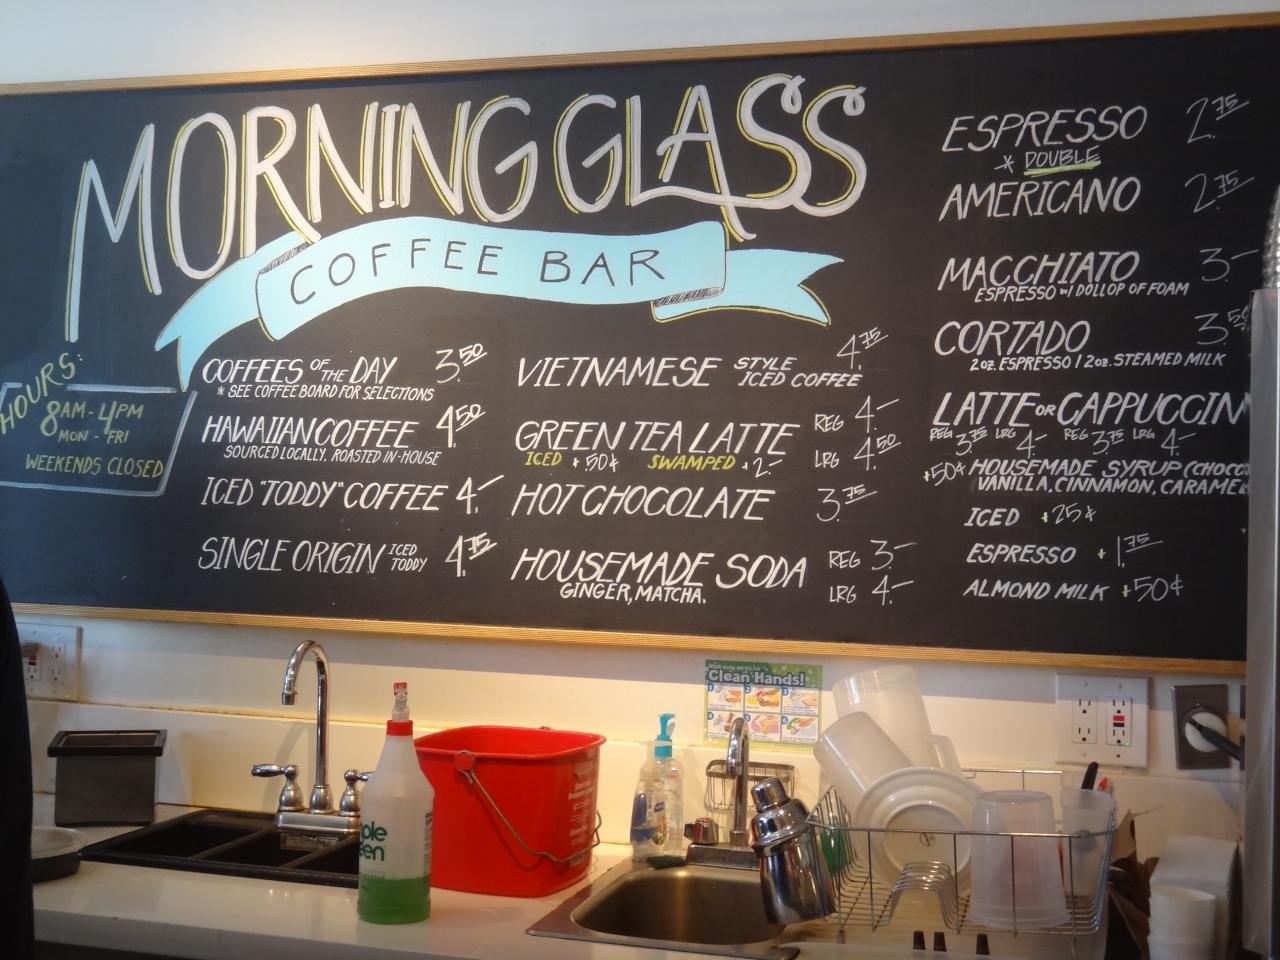 MORNING GLASS
COFFEE BAR
HOURS:
8AM - 4PM
MON - FRI
WEEKENDS CLOSED
COFFEES OF THE DAY 3.50
* SEE COFFEE BOARD FOR SELECTIONS
HAWAIIAN COFFEE 4.50
SOURCED LOCALLY, ROASTED IN-HOUSE
ICED "TODDY" COFFEE 4.-
SINGLE ORIGIN ICED TODDY 4.75
VIETNAMESE STYLE ICED COFFEE 4.75
GREEN TEA LATTE REG 4.-
LRG 4.50
ICED +50¢ SWAMPED +2.-
HOT CHOCOLATE 3.75
HOUSEMADE SODA REG 3.-
GINGER, MATCHA. LRG 4.-
ESPRESSO 2.75
* DOUBLE
AMERICANO 2.75
MACCHIATO 3.-
ESPRESSO w/ DOLLOP OF FOAM
CORTADO 3.50
2oz. ESPRESSO / 2oz. STEAMED MILK
LATTE OR CAPPUCCIN
REG 3.75 LRG 4.- REG 3.75 LRG 4.-
+50¢ HOUSEMADE SYRUP (CHOCO
VANILLA, CINNAMON, CARAME
ICED +25¢
ESPRESSO +1.75
ALMOND MILK +50¢
Clean Hands!
1 2 3
4 5 6
ple
een